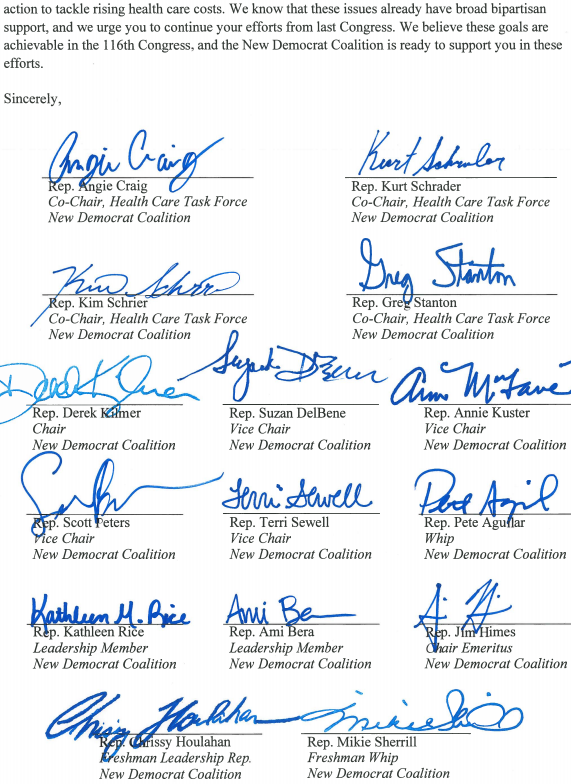 action to tackle rising health care costs. We know that these issues already have broad bipartisan
support, and we urge you to continue your efforts from last Congress. We believe these goals are
achievable in the 116th Congress, and the New Democrat Coalition is ready to support you in these
efforts.
Sincerely,
Angie Craig Kurt Schrader
Rep. Angie Craig Rep. Kurt Schrader
Co-Chair, Health Care Task Force Co-Chair, Health Care Task Force
New Democrat Coalition New Democrat Coalition
Kim Schrier Greg Stanton
Rep. Kim Schrier Rep. Greg Stanton
Co-Chair, Health Care Task Force Co-Chair, Health Care Task Force
New Democrat Coalition New Democrat Coalition
Derek Kilmer Suzan DelBene
Rep. Derek Kilmer Rep. Suzan DelBene Rep. Annie Kuster
Chair Vice Chair Vice Chair
New Democrat Coalition New Democrat Coalition New Democrat Coalition
Terri Sewell Pete Aguilar
Rep. Scott Peters Rep. Terri Sewell Rep. Pete Aguilar
Vice Chair Vice Chair Whip
New Democrat Coalition New Democrat Coalition New Democrat Coalition
Kathleen M. Rice Ami Bera
Rep. Kathleen Rice Rep. Ami Bera Rep. Jim Himes
Leadership Member Leadership Member Chair Emeritus
New Democrat Coalition New Democrat Coalition New Democrat Coalition
Chrissy Houlahan Mikie Sherrill
Rep. Chrissy Houlahan Rep. Mikie Sherrill
Freshman Leadership Rep. Freshman Whip
New Democrat Coalition New Democrat Coalition